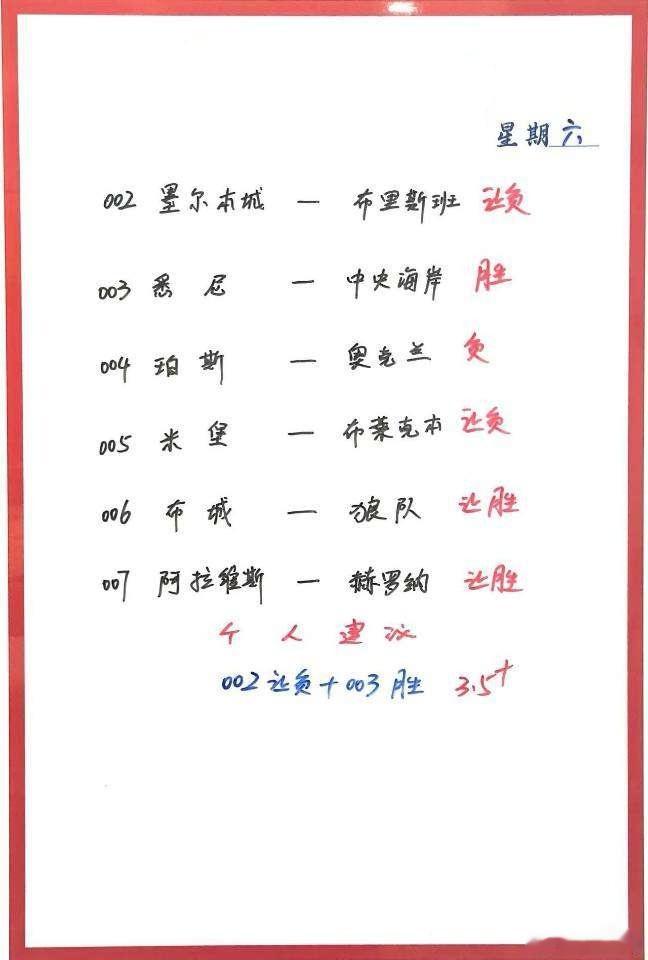 星期六
002 墨尔本城 — 布里斯班 让负
003 悉尼 — 中央海岸 胜
004 珀斯 — 奥克兰 负
005 米堡 — 布莱克本 让负
006 布城 — 狼队 让胜
007 阿拉维斯 — 赫罗纳 让胜
个人建议
002让负+003胜 3.5+